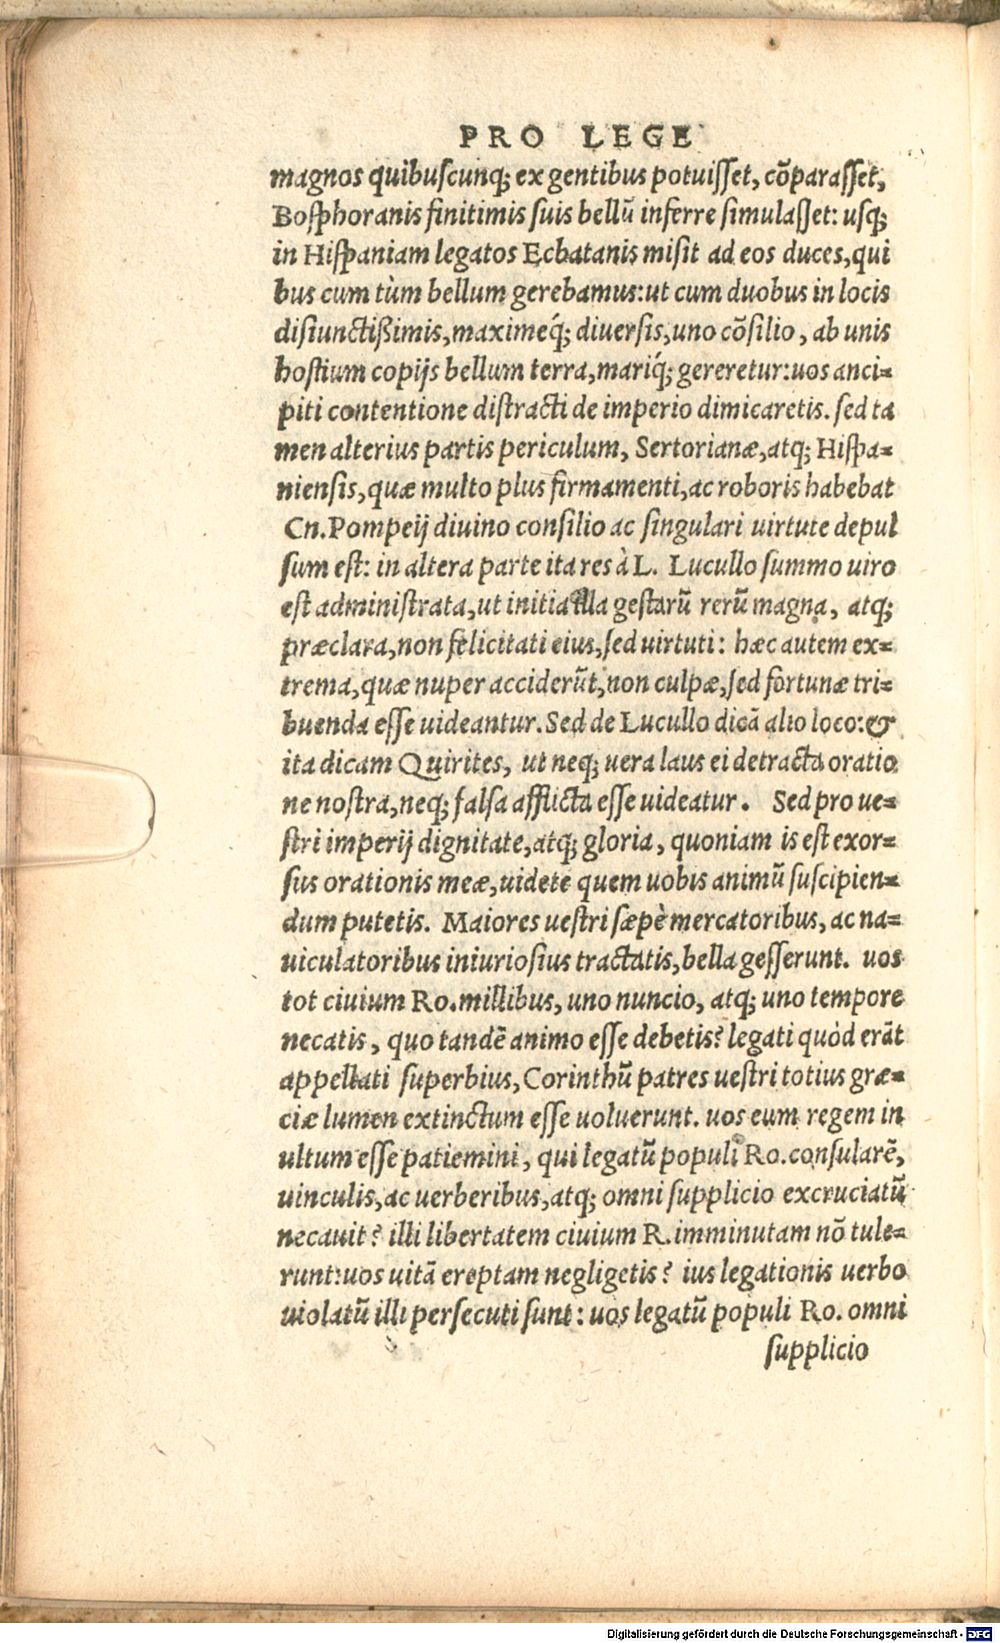 PRO LEGE
magnos quibuscunq; ex gentibus potuisset, cōparasset,
Bosphoranis finitimis suis bellū inferre simulasset: usq;
in Hispaniam legatos Ecbatanis misit ad eos duces, qui
bus cum tùm bellum gerebamus: ut cum duobus in locis
disiunctißimis, maximeq́; diuersis, uno cōsilio, ab unis
hostium copijs bellum terra, mariq́; gereretur: uos anci-
piti contentione distracti de imperio dimicaretis. sed ta
men alterius partis periculum, Sertorianæ, atq; Hispa-
niensis, quæ multo plus firmamenti, ac roboris habebat
Cn. Pompeij diuino consilio ac singulari uirtute depul
sum est: in altera parte ita res à L. Lucullo summo uiro
est administrata, ut initia illa gestarū rerū magna, atq;
præclara, non felicitati eius, sed uirtuti: hæc autem ex-
trema, quæ nuper acciderūt, non culpæ, sed fortunæ tri-
buenda esse uideantur. Sed de Lucullo dicā alio loco: &
ita dicam Quirites, ut neq; uera laus ei detracta oratio
ne nostra, neq; falsa afflicta esse uideatur. Sed pro ue-
stri imperij dignitate, atq; gloria, quoniam is est exor-
sus orationis meæ, uidete quem uobis animū suscipien-
dum putetis. Maiores uestri sæpè mercatoribus, ac na-
uiculatoribus iniuriosius tractatis, bella gesserunt. uos
tot ciuium Ro. millibus, uno nuncio, atq; uno tempore
necatis, quo tandē animo esse debetis? legati quòd erāt
appellati superbius, Corinthū patres uestri totius græ-
ciæ lumen extinctum esse uoluerunt. uos eum regem in
ultum esse patiemini, qui legatū populi Ro. consularē,
uinculis, ac uerberibus, atq; omni supplicio excruciatū
necauit? illi libertatem ciuium R. imminutam nō tule-
runt: uos uitā ereptam negligetis? ius legationis uerbo
uiolatū illi persecuti sunt: uos legatū populi Ro. omni
supplicio
Digitalisierung gefördert durch die Deutsche Forschungsgemeinschaft - DFG